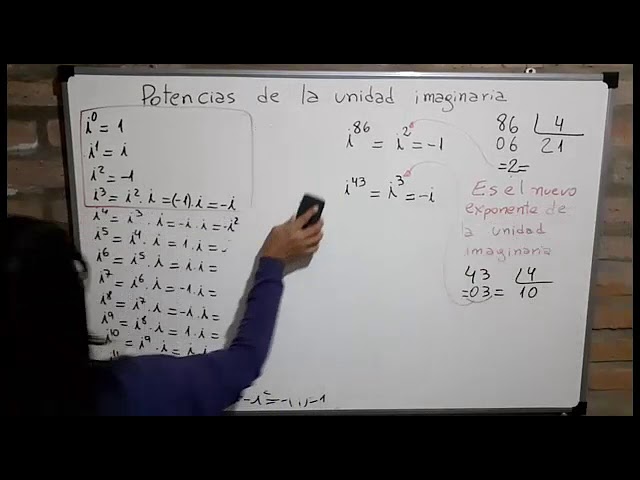 Potencias de la unidad imaginaria
i⁰ = 1
i¹ = i
i² = -1
i³ = i² . i = (-1) . i = -i
i⁴ = i³ . i = -i . i = -i²
i⁵ = i⁴ . i = 1 . i =
i⁶ = i⁵ . i = i . i =
i⁷ = i⁶ . i = -1 . i =
i⁸ = i⁷ . i = -i . i =
i⁹ = i⁸ . i = 1 . i =
i¹⁰ = i⁹ . i = i . i
i⁸⁶ = i² = -1
i⁴³ = i³ = -i
86 4
06 21
=2=
Es el nuevo
exponente de
la unidad
imaginaria
43 4
=03= 10